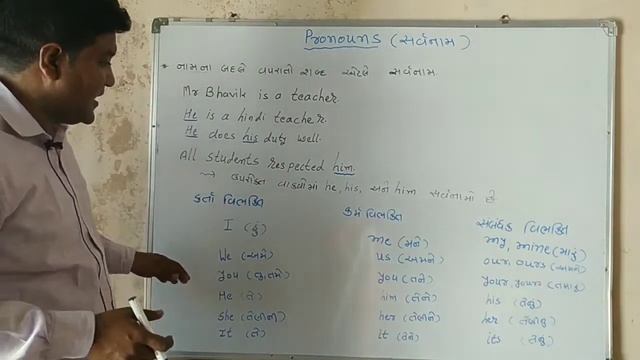 Pronouns (સર્વનામ)
* નામના બદલે વપરાતો શબ્દ એટલે સર્વનામ.
Mr Bhavik is a teacher.
He is a hindi teacher.
He does his duty well.
All students respected him.
→ ઉપરોક્ત વાક્યોમાં he, his, અને him સર્વનામો છે
કર્તા વિભક્તિ કર્મ વિભક્તિ સંબંધક વિભક્તિ
I (હું) me (મને) my, mine (મારું)
We (અમે) us (અમને) our, ours (અમારું)
you (તું, તમે) you (તને) your, your (તમારું)
He (તે) him (તેને) his (તેનું)
She (તેણીની) her (તેણીને) her (તેણીનું)
It (તે) it (તેને) its (તેનું)